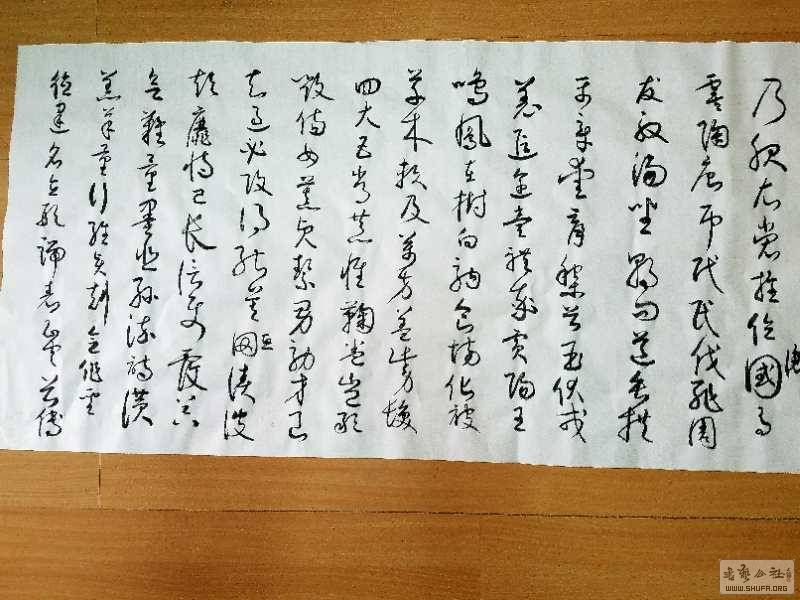 乃服衣裳推位讓國有
虞陶唐弔民伐罪周
發殷湯坐朝問道垂拱
平章愛育黎首臣伏戎
羌遐邇壹體率賓歸王
鳴鳳在樹白駒食場化被
草木賴及萬方蓋此身髮
四大五常恭惟鞠養豈敢
毀傷女慕貞絜男效才良
知過必改得能莫忘罔談彼
短靡恃己長信使可覆器
欲難量墨悲絲染詩讚
羔羊景行維賢克念作聖
德建名立形端表正空谷傳
WWW.SHUFA.ORG